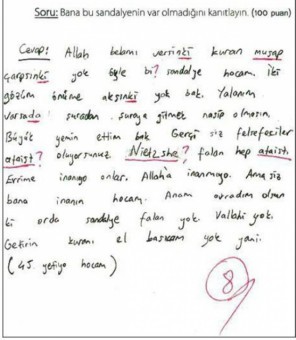 Soru: Bana bu sandalyenin var olmadığını kanıtlayın. (100 puan)
Cevap: Allah belamı versinki kuran musap
çarpsınki yok öyle bi? sandalye hocam. İki
gözüm önüme aksınki yok bak. Yalanım
varsada suradan suraya gitmek nasip olmasın.
Büyük yemin ettim bak. Gerçi siz felsefeciler
ataist? oluyorsunuz. Nietzshe? falan hep ataist.
Evrime inanıyo onlar. Allaha inanmıyo. Ama siz
bana inanın hocam. Anam avradım olsun
ki orda sandalye falan yok. Vallahi yok.
Getirin kuranı el basıcam yok yani.
(45 yetiyo hocam)
8